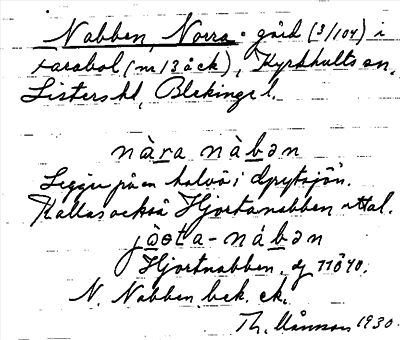 Nabben, Norra - gård (3/104) i
Farabol (nr 13 åck), Kyrkhults sn,
Listers hd, Blekinge l.
nàra nàbən
Ligger på en halvö i Grytsjön.
Kallas också Hjortanabben uttal.
jòɵta-nábən
Hjortnabben, dj 1840.
N. Nabben, bek. ek.
Th. Månsson 1930.